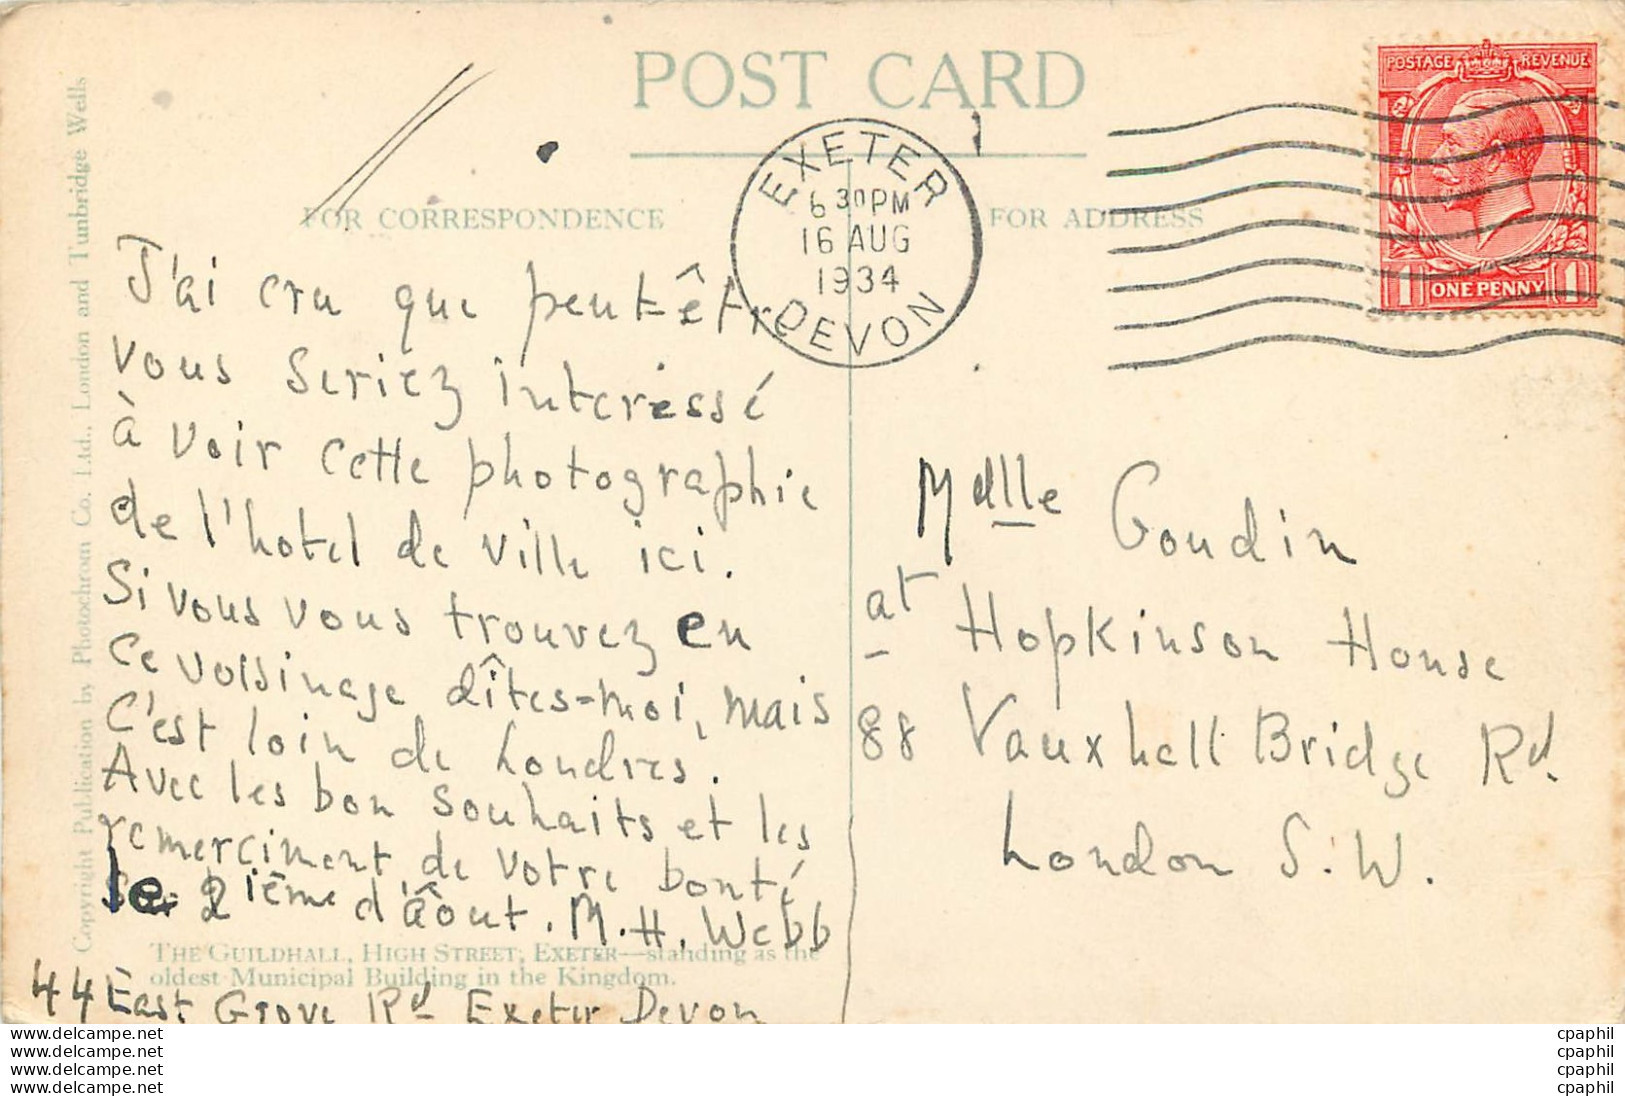 POST CARD
FOR CORRESPONDENCE
FOR ADDRESS
EXETER
6 30 PM
16 AUG
1934
DEVON
POSTAGE REVENUE
1 ONE PENNY 1
Copyright Publication by Photochrom Co. Ltd., London and Tunbridge Wells
J'ai cru que peut-être
vous seriez interessé
à voir cette photographie
de l'hotel de ville ici.
Si vous vous trouvez en
ce voisinage dîtes-moi, mais
c'est loin de Londres.
Avec les bon souhaits et les
remerciment de votre bonté
le 21ème d'âout. M. H. Webb
THE GUILDHALL, HIGH STREET, EXETER—standing as the
oldest Municipal Building in the Kingdom.
44 East Grove Rd Exeter Devon
Mdlle Goudin
at Hopkinson House
88 Vauxhall Bridge Rd.
London S.W.
cpaphil
cpaphil
cpaphil
cpaphil
www.delcampe.net
www.delcampe.net
www.delcampe.net
www.delcampe.net